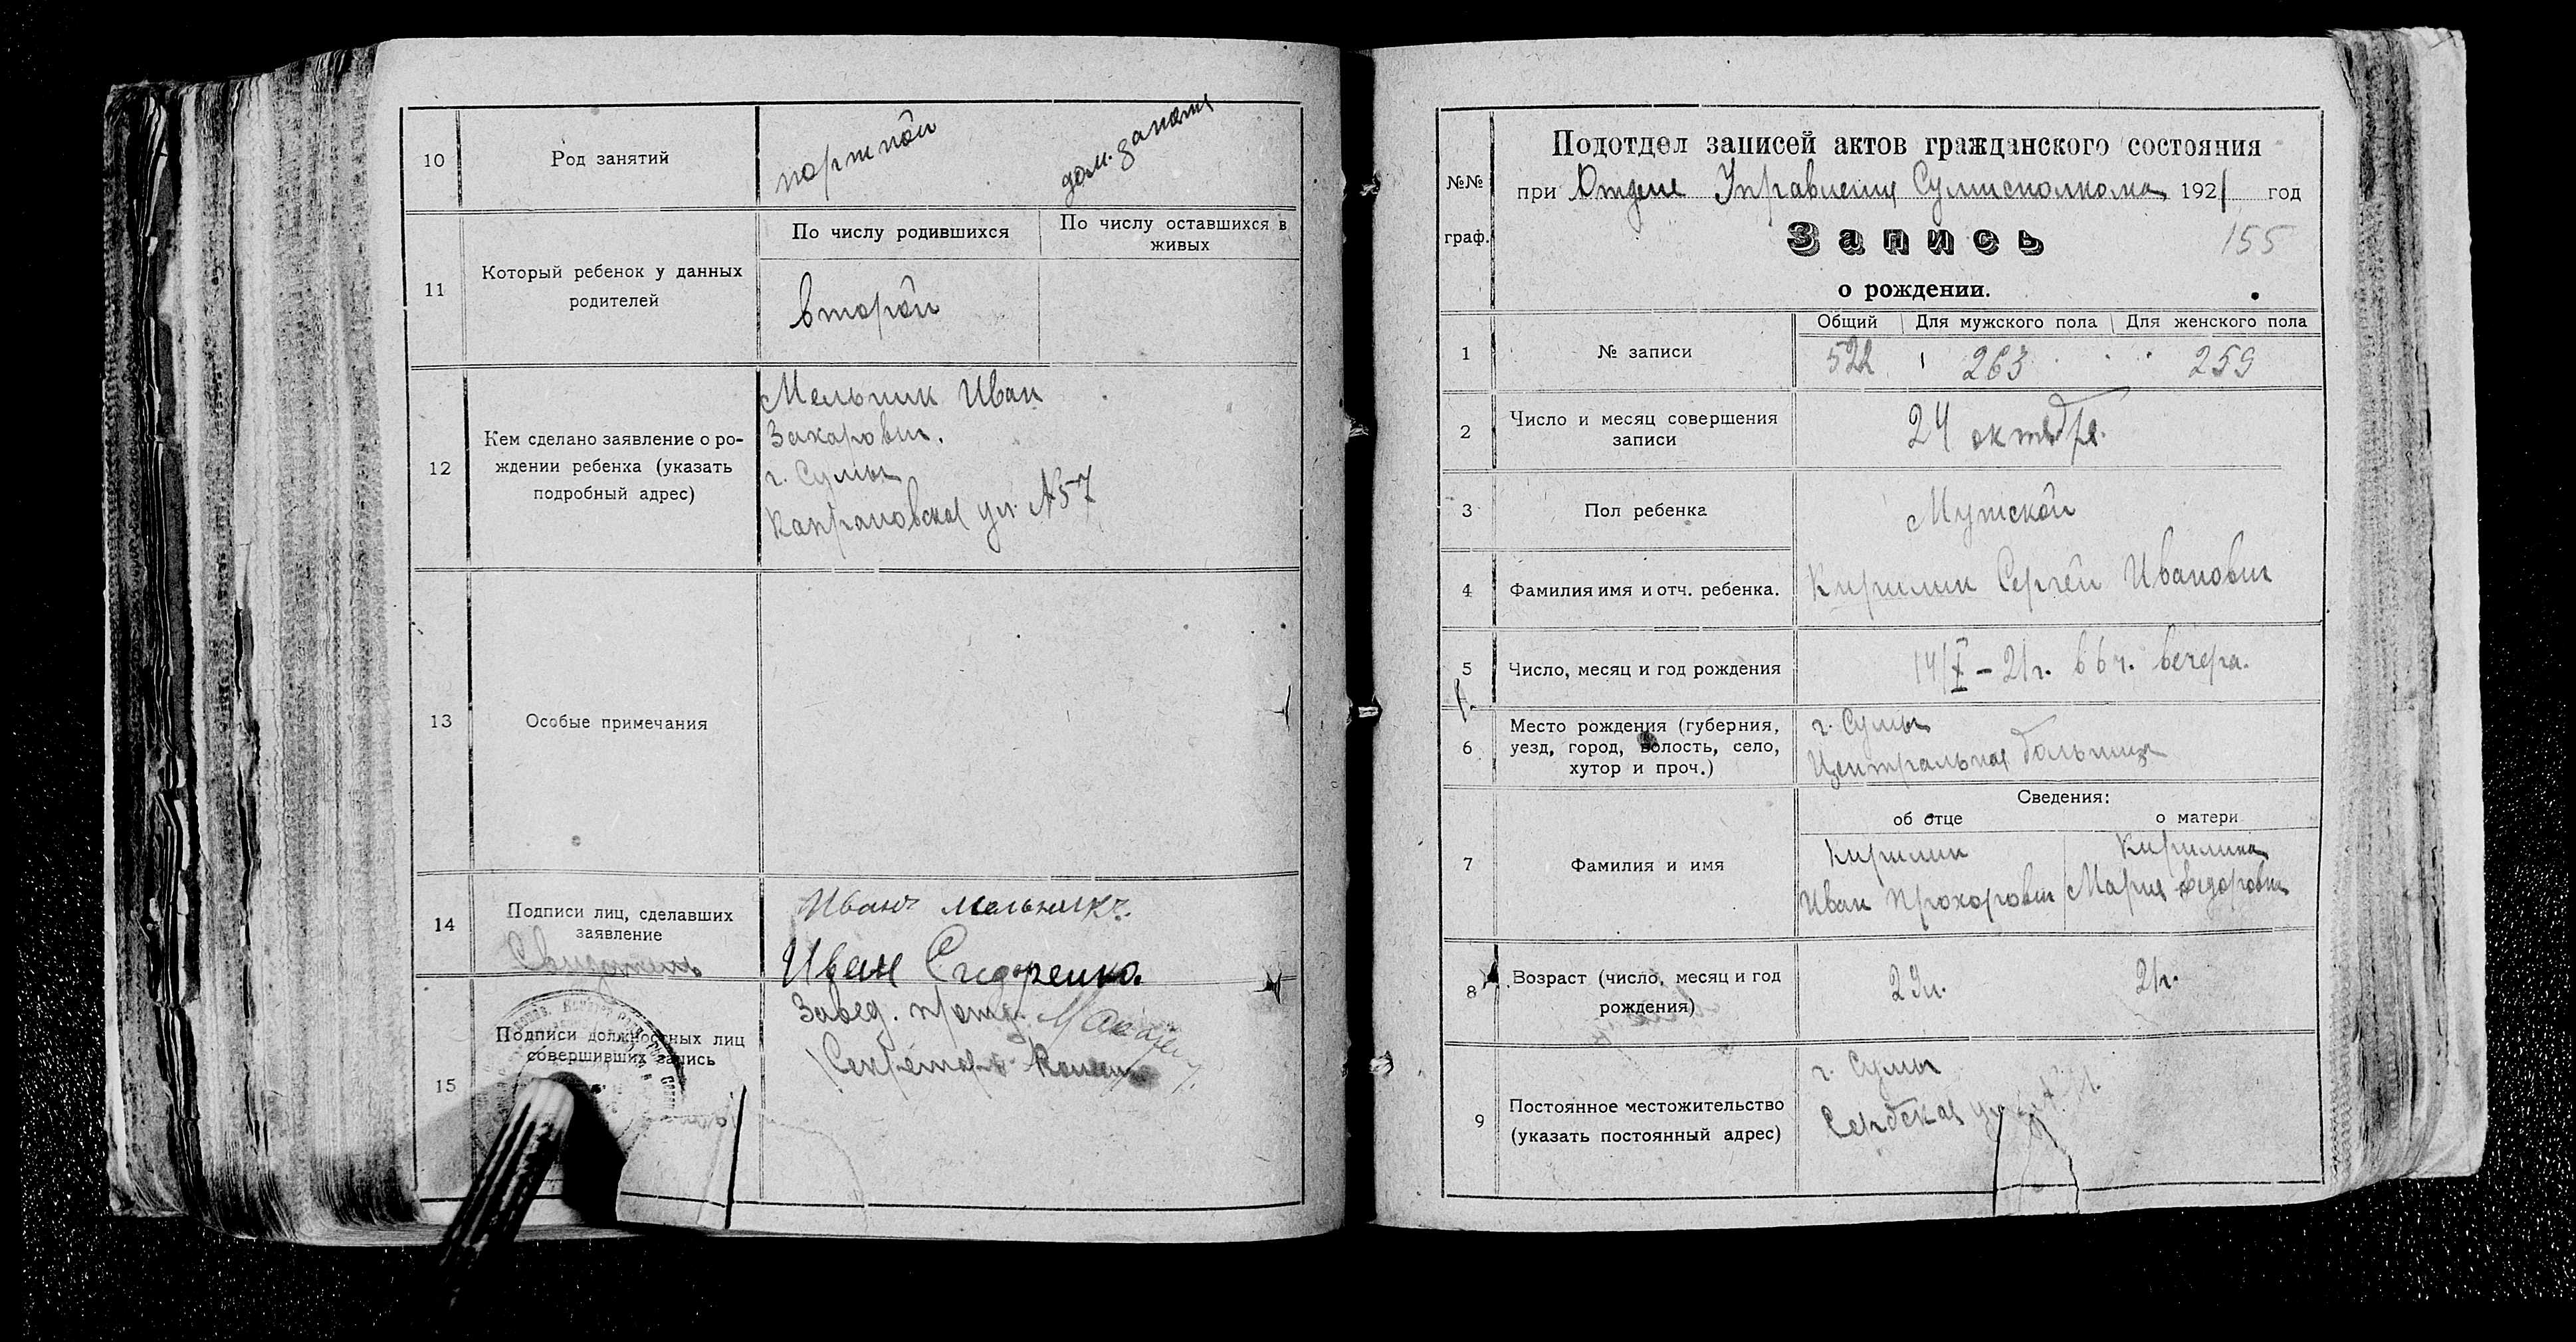 10
Род занятий
портной
дом. занятия
11
Который ребенок у данных
родителей
По числу родившихся
По числу оставшихся в
живых
второй
12
Кем сделано заявление о ро-
ждении ребенка (указать
подробный адрес)
Мельник Иван
Захарович.
г. Сумы
ул. №57
13
Особые примечания
14
Подписи лиц, сделавших
заявление
Свидетель
Иванъ Мельникъ.
Иван Сидоренко.
15
Подписи должностных лиц
совершивших запись
Завед.
Секретарь
№№
граф.
Подотдел записей актов гражданского состояния
при Отделе Управления Сумисполкома 1921 год
Запись
155
о рождении.
1
№ записи
Общий
Для мужского пола
Для женского пола
522
263
259
2
Число и месяц совершения
записи
24 октября.
3
Пол ребенка
Мужской
4
Фамилия имя и отч. ребенка.
Кирилин Сергей Иванович
5
Число, месяц и год рождения
14/X – 21г. в 6 ч. вечера.
6
Место рождения (губерния,
уезд, город, волость, село,
хутор и проч.)
г. Сумы
Центральная больница
7
Фамилия и имя
Сведения:
об отце
о матери
Кирилин
Иван Прохорович
Кирилина
Мария Федоровна
8
Возраст (число, месяц и год
рождения)
29л.
21г.
9
Постоянное местожительство
(указать постоянный адрес)
г. Сумы